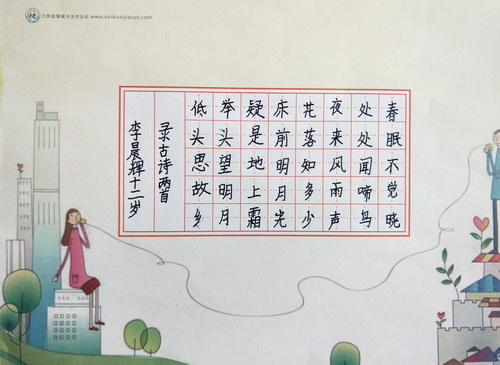 三阅签赠单
www.sankuaijiaoyu.com
春眠不觉晓
处处闻啼鸟
夜来风雨声
花落知多少
床前明月光
疑是地上霜
举头望明月
低头思故乡
录古诗两首
李晨辉十二岁